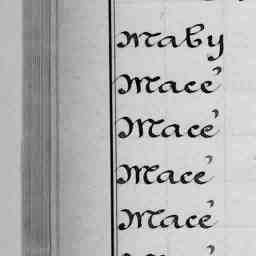 Maby
Macé
Macé
Macé
Macé